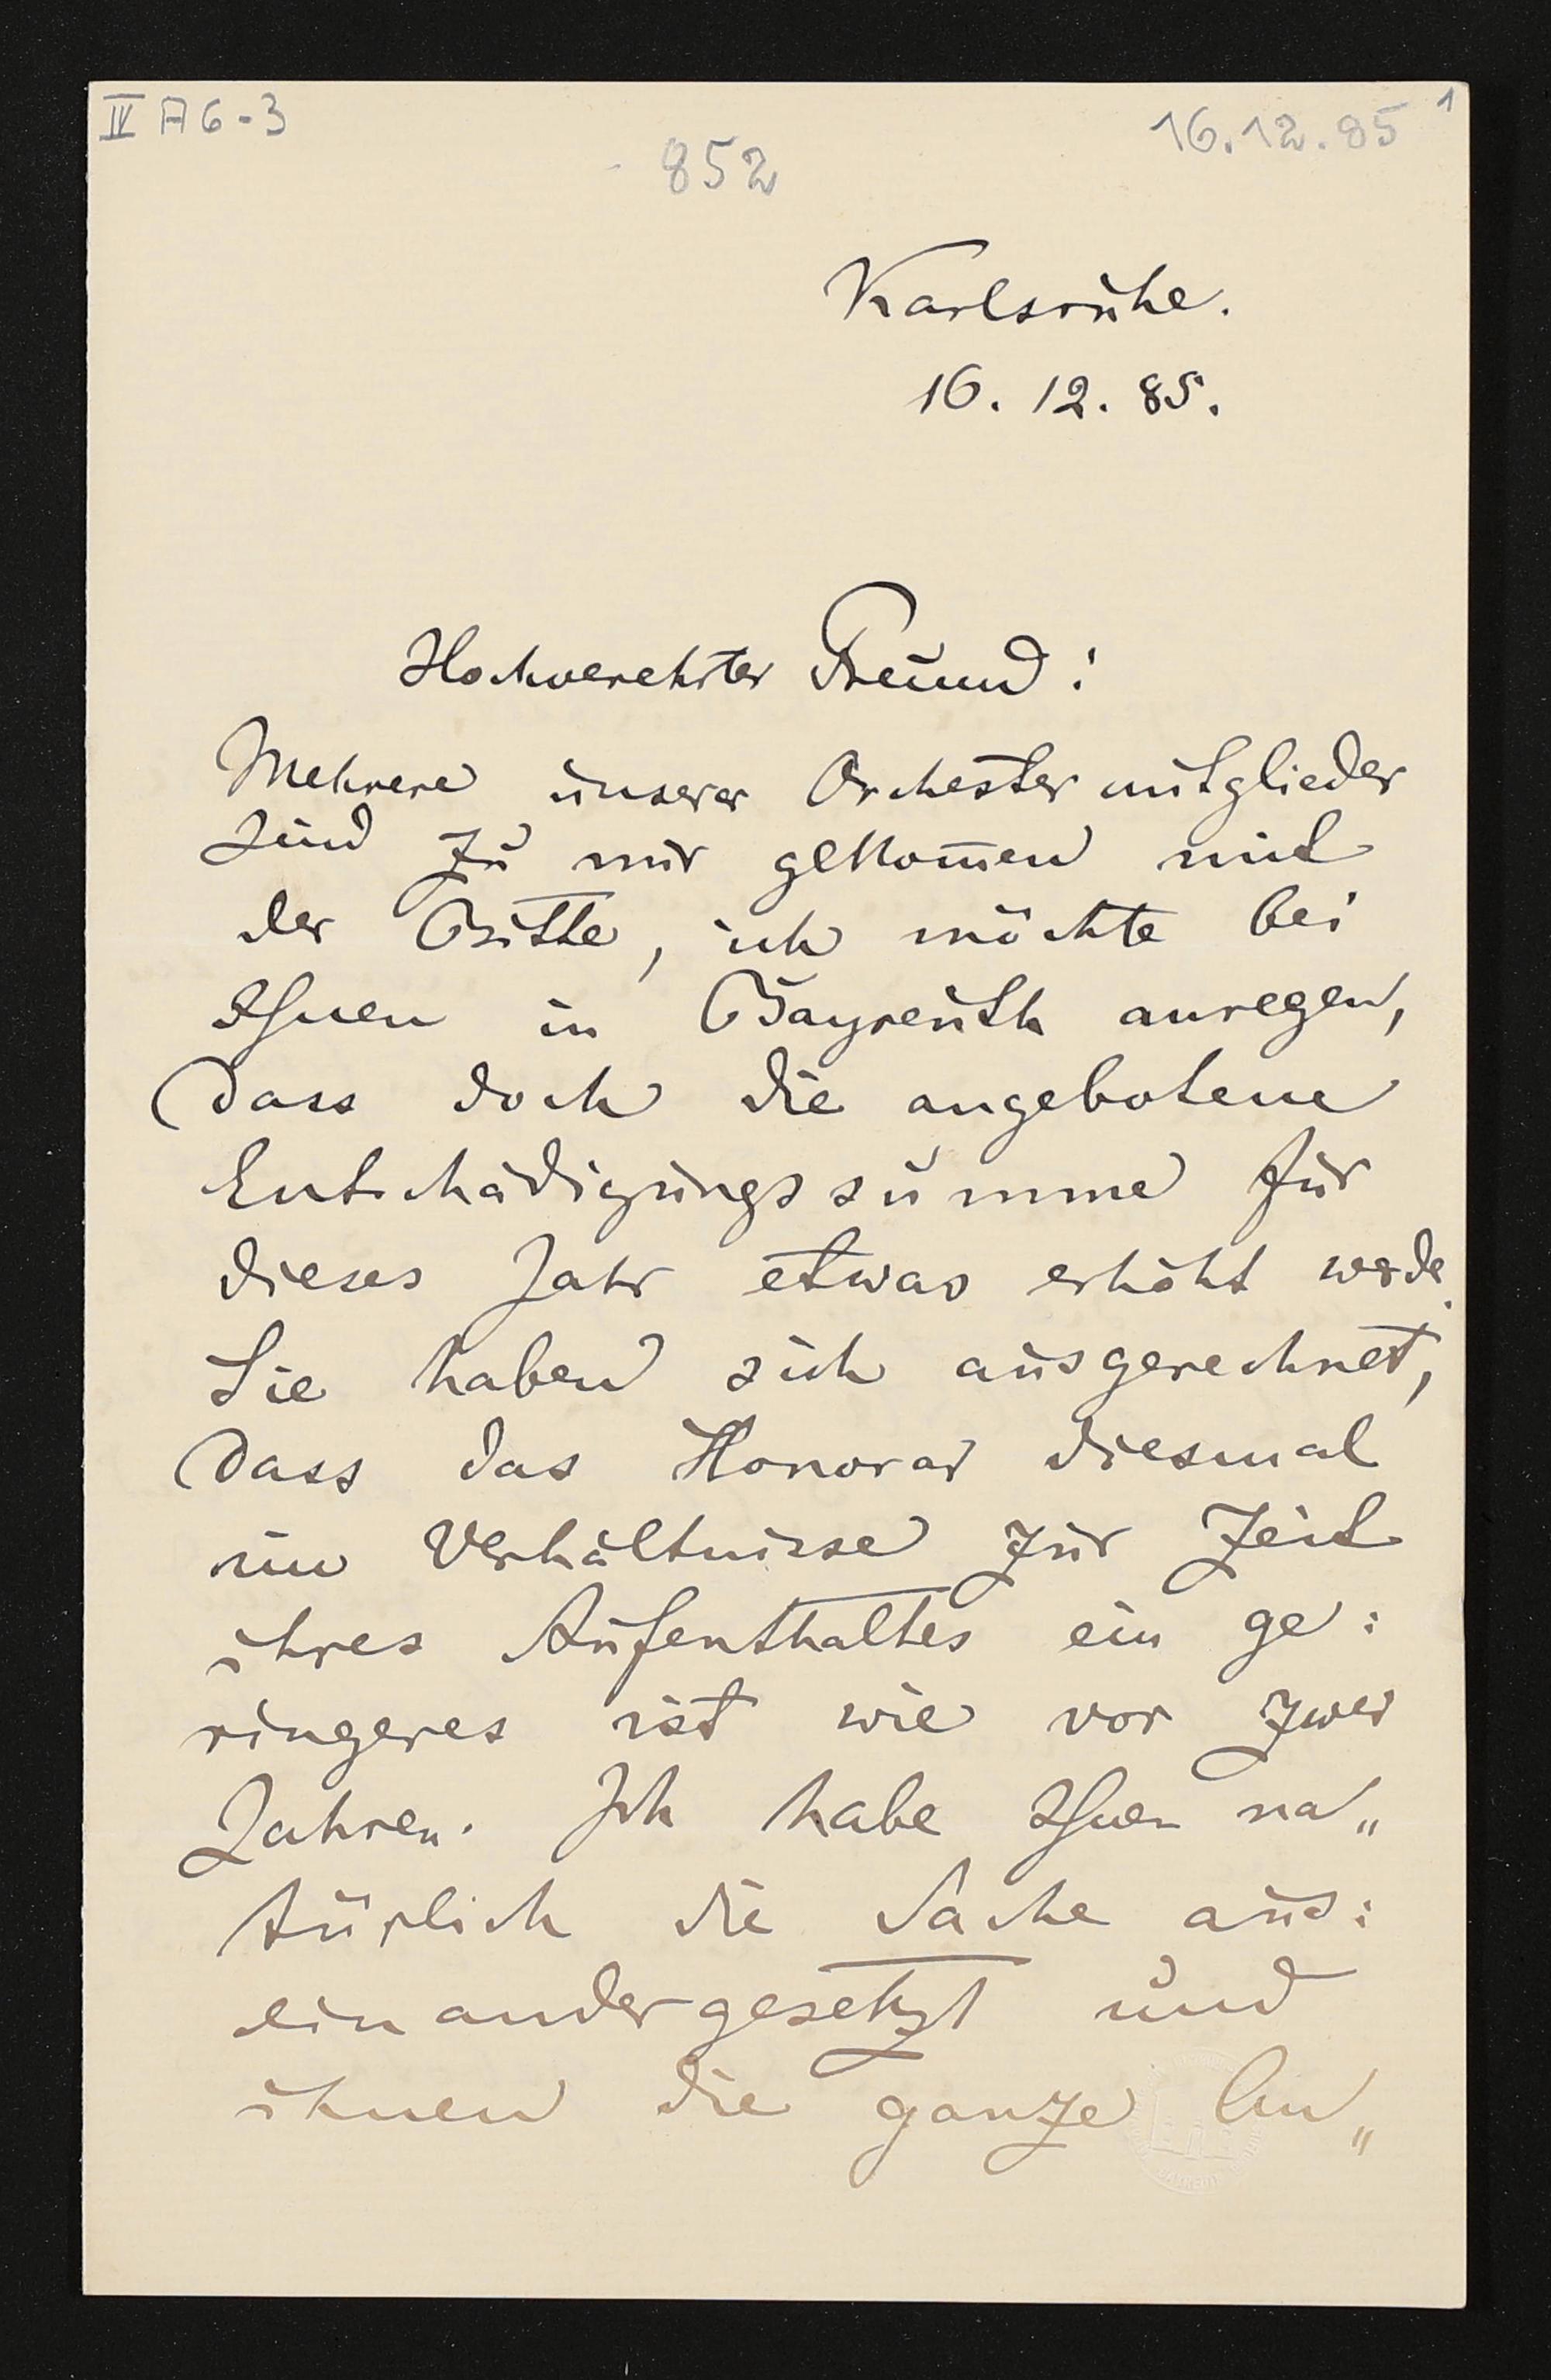 IV A 6-3
16.12.85 1
852
Karlsruhe.
16. 12. 85.
Hochverehrter Freund!
Mehrere unserer Orchestermitglieder
sind zu mir gekom̄en mit
der Bitte, ich möchte bei
Ihnen in Bayreuth anregen,
dass doch die angebotene
Entschädigungssumme für
dieses Jahr etwas erhöht werde.
Sie haben sich ausgerechnet,
dass das Honorar diesmal
im Verhältnisse zur Zeit
ihres Aufenthaltes ein ge:
ringeres ist wie vor zwei
Jahren. Ich habe Ihnen na„
türlich die Sache aus:
einandergesetzt und
ihnen die ganze An„